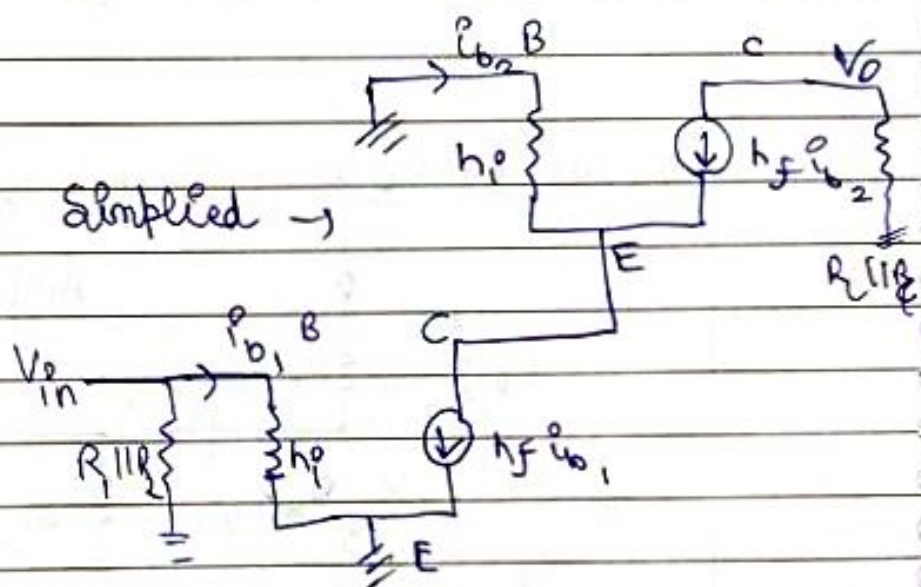 i_b₂ B
C V_o
h_i
h_f i_b₂
Simplied →
E
R_L||R_C
i_b₁ B
C
V_in
R₁||R₂
h_i
h_f i_b₁
E